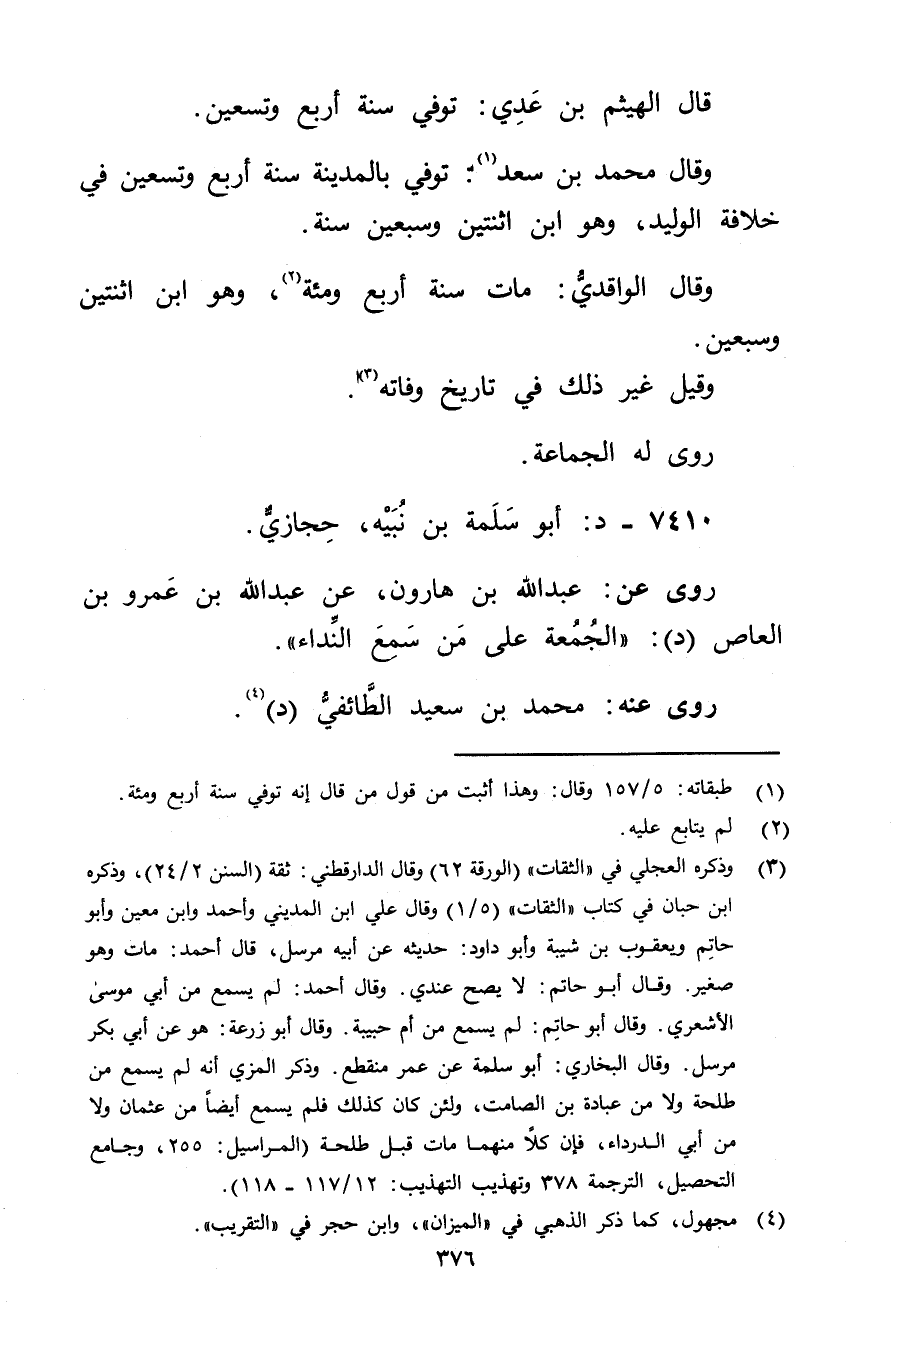 قال الهيثم بن عَدِي: توفي سنة أربع وتسعين.
وقال محمد بن سعد(١): توفي بالمدينة سنة أربع وتسعين في
خلافة الوليد، وهو ابن اثنتين وسبعين سنة.
وقال الواقديُّ: مات سنة أربع ومئة(٢)، وهو ابن اثنتين
وسبعين.
وقيل غير ذلك في تاريخ وفاته(٣).
روى له الجماعة.
٧٤١٠ - د: أبو سَلَمة بن نُبَيْه، حِجازيٌّ.
روى عن: عبدالله بن هارون، عن عبدالله بن عَمرو بن
العاص (د): «الجُمُعة على مَن سَمِعَ النِّداء».
روى عنه: محمد بن سعيد الطَّائفيُّ (د)(٤).
(١) طبقاته: ١٥٧/٥ وقال: وهذا أثبت من قول من قال إنه توفي سنة أربع ومئة.
(٢) لم يتابع عليه.
(٣) وذكره العجلي في «الثقات» (الورقة ٦٢) وقال الدارقطني: ثقة (السنن ٢٤/٢)، وذكره
ابن حبان في كتاب «الثقات» (١/٥) وقال علي ابن المديني وأحمد وابن معين وأبو
حاتِم ويعقوب بن شيبة وأبو داود: حديثه عن أبيه مرسل، قال أحمد: مات وهو
صغير. وقال أبو حاتم: لا يصح عندي. وقال أحمد: لم يسمع من أبي موسىٰ
الأشعري. وقال أبو حاتِم: لم يسمع من أم حبيبة. وقال أبو زرعة: هو عن أبي بكر
مرسل. وقال البخاري: أبو سلمة عن عمر منقطع. وذكر المزي أنه لم يسمع من
طلحة ولا من عبادة بن الصامت، ولئن كان كذلك فلم يسمع أيضاً من عثمان ولا
من أبي الدرداء، فإن كلاًّ منهما مات قبل طلحة (المراسيل: ٢٥٥، وجامع
التحصيل، الترجمة ٣٧٨ وتهذيب التهذيب: ١١٧/١٢ - ١١٨).
(٤) مجهول، كما ذكر الذهبي في «الميزان»، وابن حجر في «التقريب».
٣٧٦